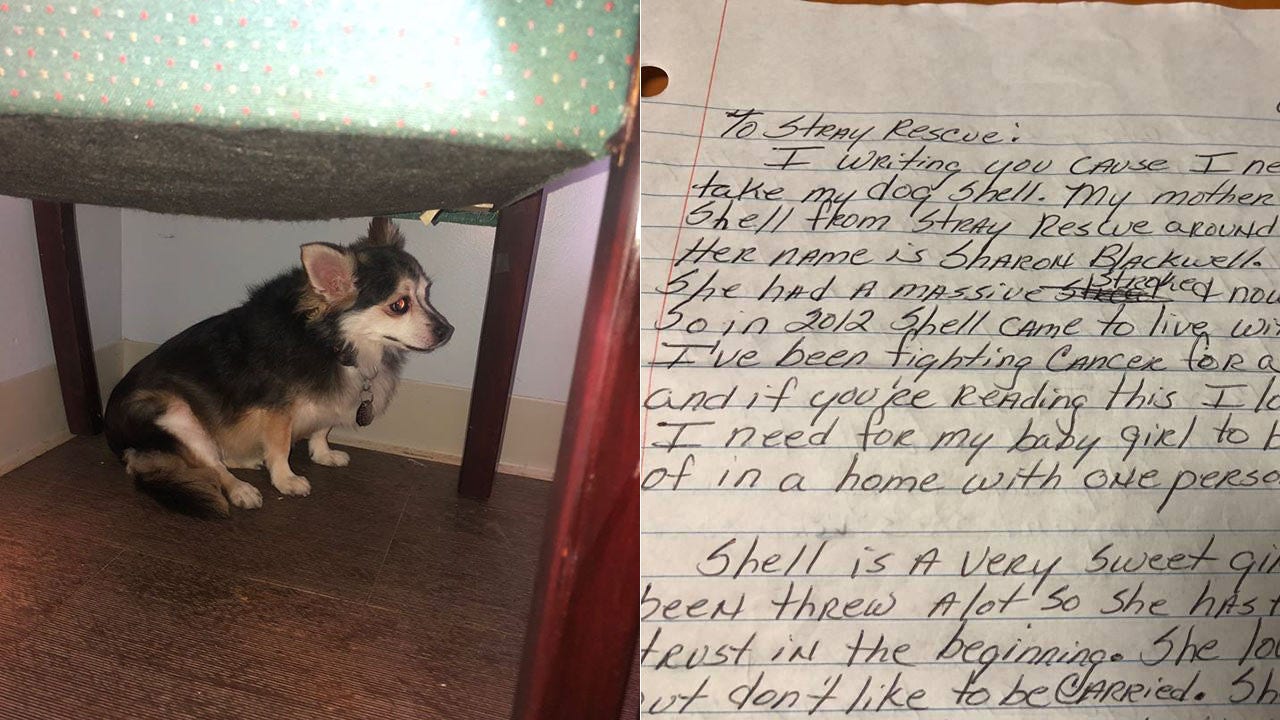 To Stray Rescue:
I writing you cause I ne
take my dog Shell. My mother
Shell from Stray Rescue around
Her name is Sharon Blackwell.
She had a massive Stroked now
So in 2012 Shell came to live wi
I've been fighting Cancer for a
and if you're Reading this I lo
I need for my baby girl to b
of in a home with one perso
Shell is a very sweet gi
been threw alot so she has t
trust in the beginning. She lo
ut don't like to be CARRied. Sh